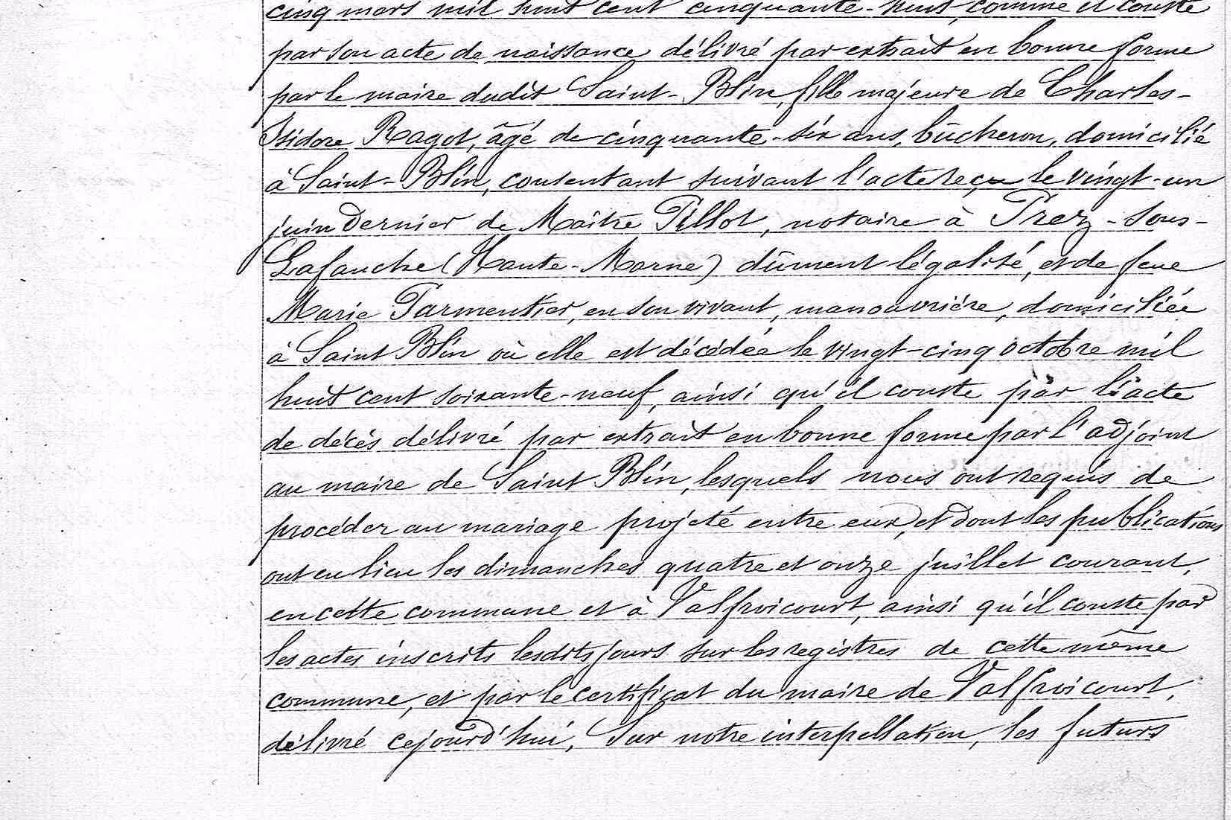 cinq mars mil huit cent cinquante-huit, comme il conste
par son acte de naissance délivré par extrait en bonne forme
par le maire dudit Saint-Blin, fille majeure de Charles-
Isidore Ragot, âgé de cinquante-six ans, bûcheron, domicilié
à Saint-Blin, consentant suivant l'acte reçu le vingt-un
juin dernier de Maître Tillot, notaire à Prez-sous-
Lafauche (Haute-Marne) dûment légalisé, et de feue
Marie Parmentier, en son vivant, manouvrière, domiciliée
à Saint Blin où elle est décédée le vingt-cinq octobre mil
huit cent soixante-neuf, ainsi qu'il conste par l'acte
de décès délivré par extrait en bonne forme par l'adjoint
au maire de Saint Blin, lesquels nous ont requis de
procéder au mariage projeté entre eux, et dont les publications
ont eu lieu les dimanches quatre et onze juillet courant,
en cette commune et à Valfroicourt, ainsi qu'il conste par
les actes inscrits lesdits jours sur les registres de cette même
commune, et par le certificat du maire de Valfroicourt,
délivré cejourd'hui, Sur notre interpellation, les futurs